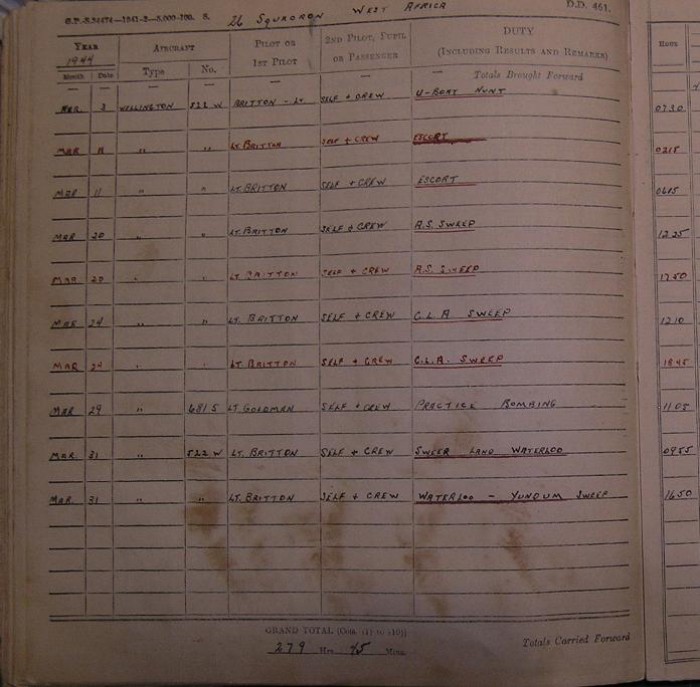 G.P.-S.24474—1941-2—5,000-100. S. 26 SQUADRON WEST AFRICA D.D. 461.
YEAR 1944 AIRCRAFT PILOT OR 1ST PILOT 2ND PILOT, PUPIL OR PASSENGER DUTY (INCLUDING RESULTS AND REMARKS) HOUR
Month Date Type No.
— — — — — — — Totals Brought Forward
MAR 3 WELLINGTON 522 W BRITTON - Lt. SELF + CREW U-BOAT HUNT 0730
MAR 11 " " Lt BRITTON SELF + CREW ESCORT 0215
MAR 11 " " Lt. BRITTON SELF + CREW ESCORT 0615
MAR 20 " " Lt. BRITTON SELF + CREW A.S. SWEEP 1225
MAR 20 " " Lt BRITTON SELF + CREW A.S. SWEEP 1750
MAR 24 " " Lt. BRITTON SELF + CREW C.L.A SWEEP 1210
MAR 24 " " Lt. BRITTON SELF + CREW C.L.A. SWEEP 1845
MAR 29 " 681 S Lt. GOLDMAN SELF + CREW PRACTICE BOMBING 1105
MAR 31 " 522 W Lt. BRITTON SELF + CREW SWEEP LAND WATERLOO 0955
MAR 31 " " Lt. BRITTON SELF + CREW WATERLOO - YUNDUM SWEEP 1650
GRAND TOTAL [Cols. (1) to (10)]
279 Hrs. 45 Mins. Totals Carried Forward